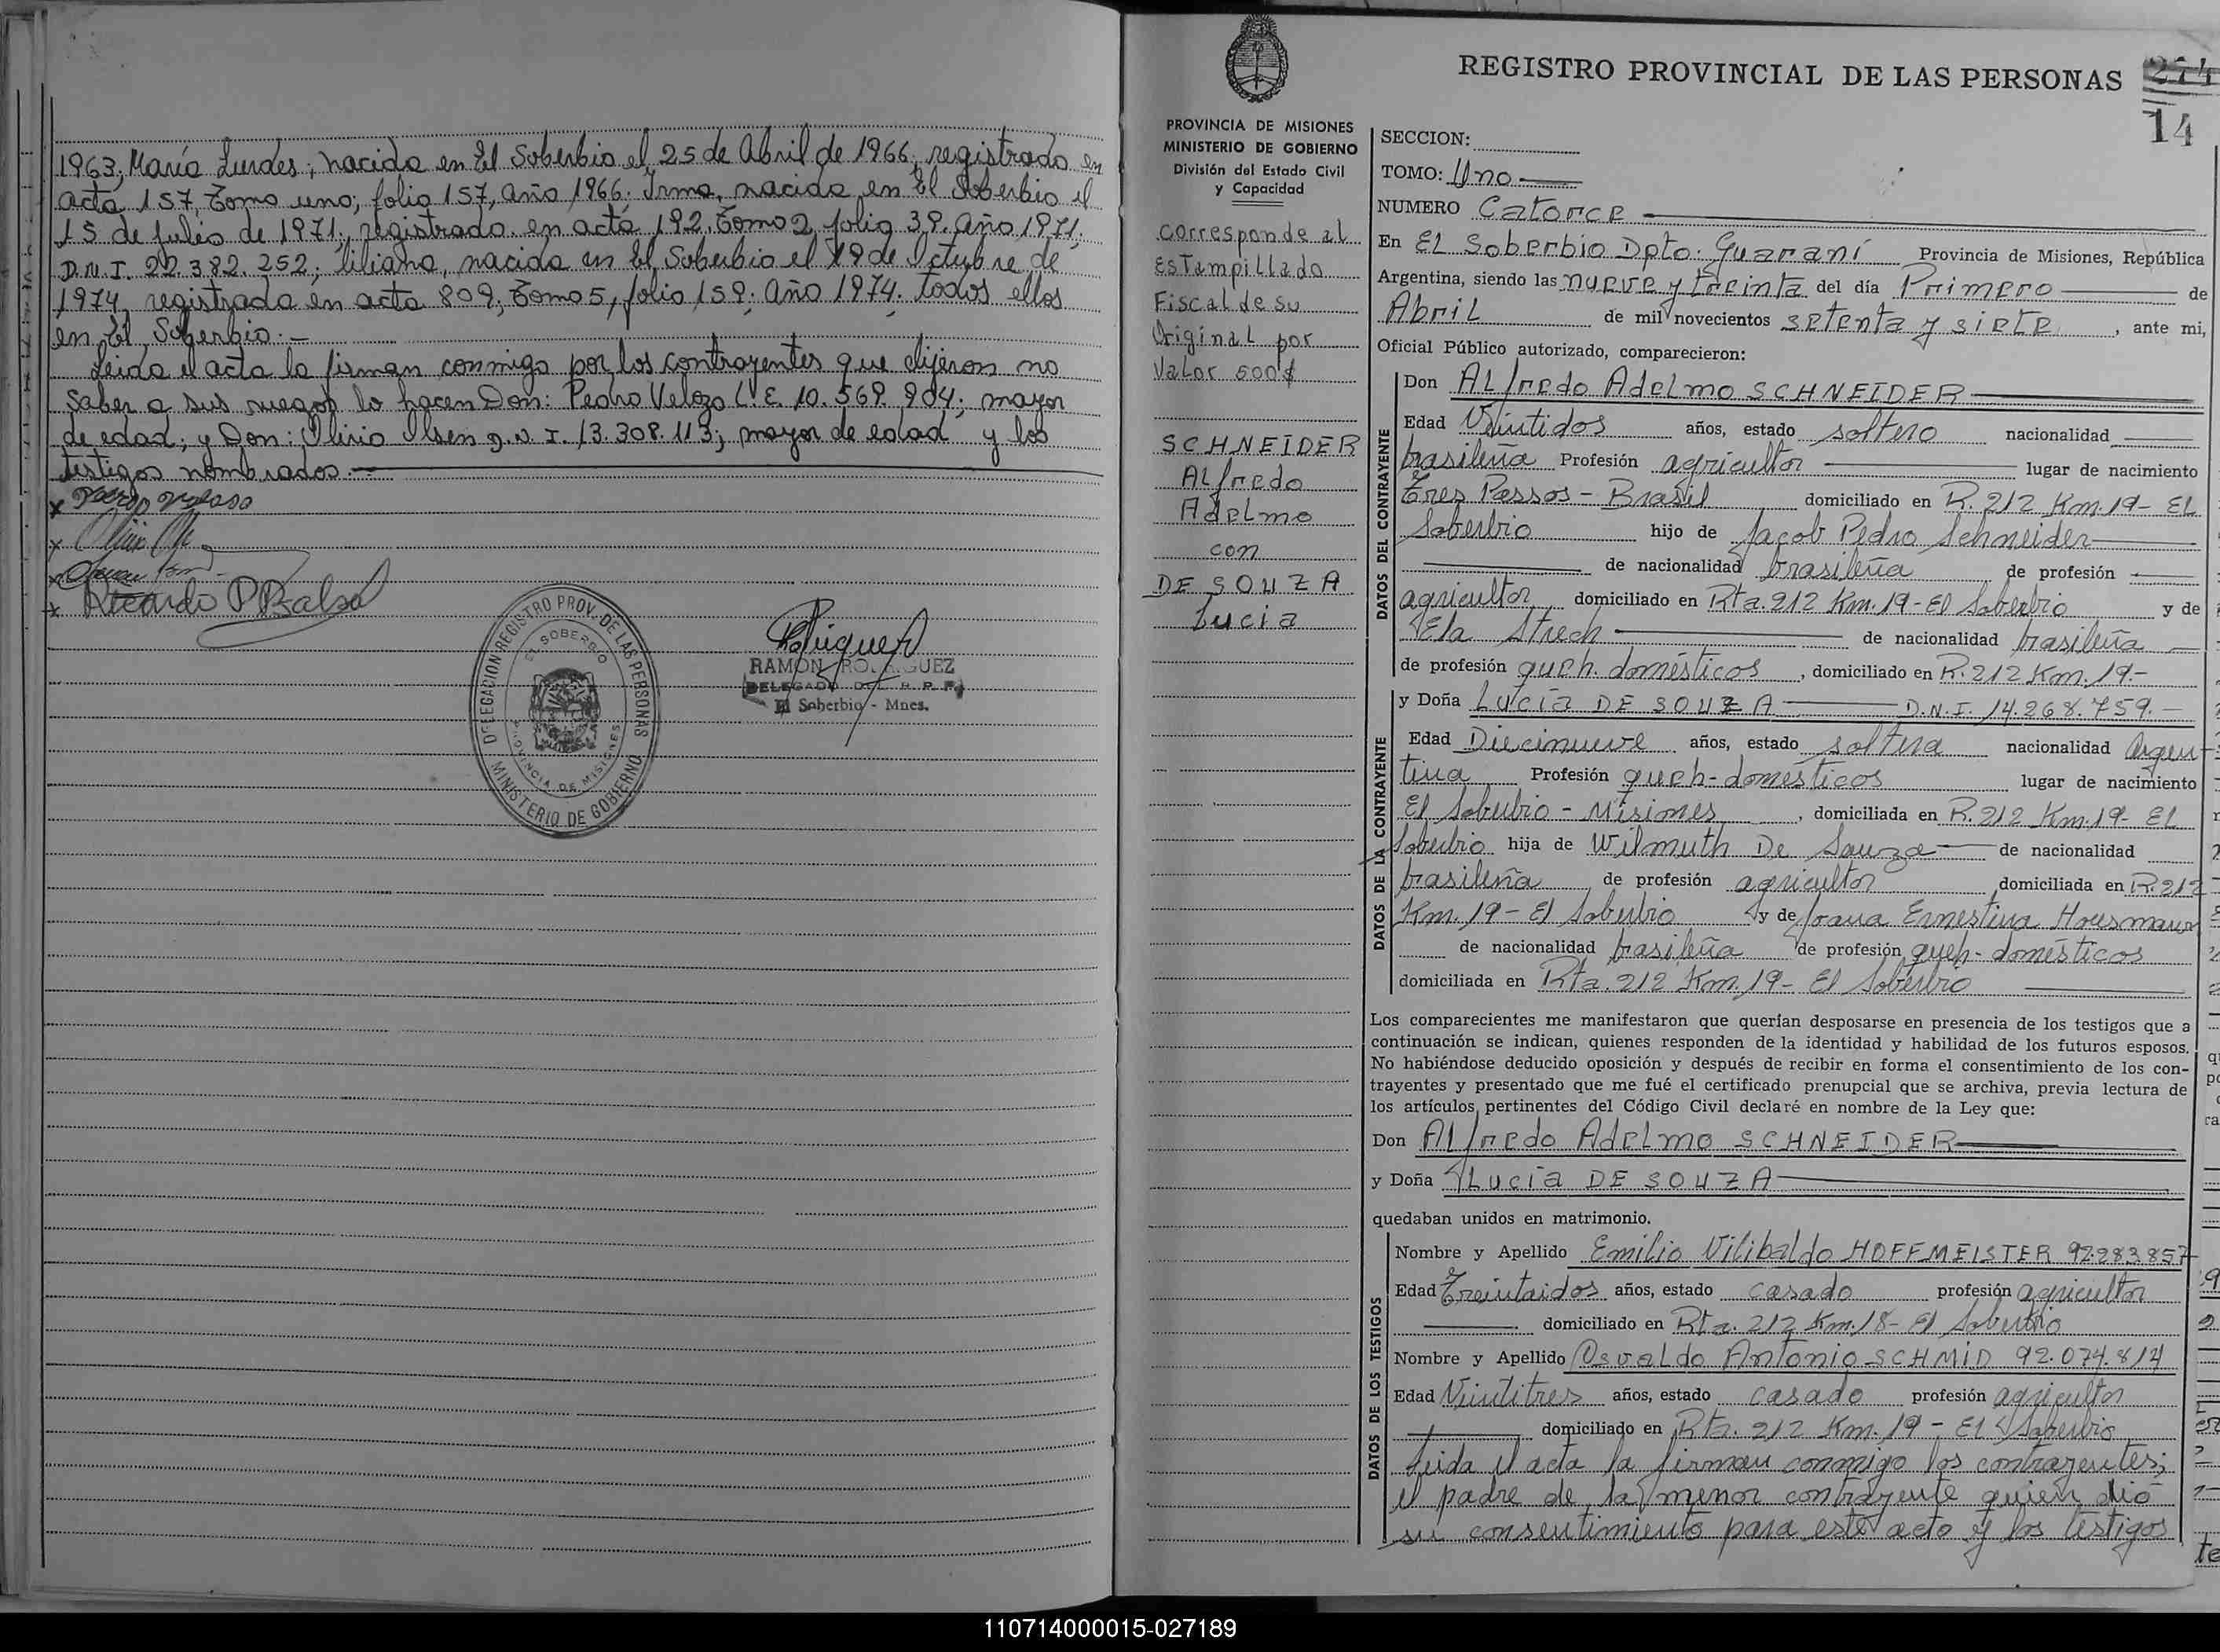 1963; María Lurdes; nacida en El Soberbio el 25 de Abril de 1966; registrado en
acta 157, Tomo uno; folio 157, año 1966; Irma, nacida en El Soberbio el
15 de Julio de 1971; registrado en acta 192, Tomo 2, folio 39. Año 1971;
D.N.I. 22.382.252; liliana, nacida en El Soberbio el 19 de Octubre de
1974, registrada en acta 809; Tomo 5, folio 159; Año 1974. todos ellos
en El Soberbio.-
Leida el acta la firman conmigo por los contrayentes que dijeron no
saber a sus ruegos lo hacen Don: Pedro Velozo L.E. 10.569.904; mayor
de edad; y Don: Olirio Olsen D.N.I. 13.308.113; mayor de edad y los
testigos nombrados.-
Ricardo
DELEGACION REGISTRO PROV. DE LAS PERSONAS
EL SOBERBIO
PROVINCIA DE MISIONES
MINISTERIO DE GOBIERNO
RAMON RODRIGUEZ
DELEGADO DEL R. P. P.
El Soberbio - Mnes.
REGISTRO PROVINCIAL DE LAS PERSONAS
274
14
PROVINCIA DE MISIONES
MINISTERIO DE GOBIERNO
División del Estado Civil
y Capacidad
Corresponde al
Estampillado
Fiscal de su
Original por
Valor 500$
SCHNEIDER
Alfredo
Adelmo
con
DE SOUZA
Lucia
SECCION:
TOMO: Uno
NUMERO Catorce
En El Soberbio Dpto. Guaraní Provincia de Misiones, República
Argentina, siendo las nueve y treinta del día Primero de
Abril de mil novecientos setenta y siete, ante mi,
Oficial Público autorizado, comparecieron:
DATOS DEL CONTRAYENTE
Don Alfredo Adelmo SCHNEIDER
Edad Veintidos años, estado soltero nacionalidad
brasileña Profesión agricultor lugar de nacimiento
Tres Passos - Brasil domiciliado en R. 212 Km. 19- El
Soberbio hijo de Jacob Pedro Schneider
de nacionalidad brasileña de profesión
agricultor domiciliado en Rta. 212 Km. 19- El Soberbio y de
Ela Strech de nacionalidad brasileña
de profesión queh. domésticos, domiciliado en R. 212 Km. 19-
DATOS DE LA CONTRAYENTE
y Doña Lucía DE SOUZA D.N.I. 14.268.759.-
Edad Diecinueve años, estado soltera nacionalidad Argen-
tina Profesión queh- domésticos lugar de nacimiento
El Soberbio - Misiones, domiciliada en R. 212 Km. 19- El
Soberbio hija de Wilmuth De Souza de nacionalidad
brasileña de profesión agricultor domiciliada en R. 212
Km. 19- El Soberbio y de Joana Ernestina Housmann
de nacionalidad brasileña de profesión queh- domésticos
domiciliada en Rta. 212 Km. 19- El Soberbio
Los comparecientes me manifestaron que querían desposarse en presencia de los testigos que a
continuación se indican, quienes responden de la identidad y habilidad de los futuros esposos.
No habiéndose deducido oposición y después de recibir en forma el consentimiento de los con-
trayentes y presentado que me fué el certificado prenupcial que se archiva, previa lectura de
los artículos pertinentes del Código Civil declaré en nombre de la Ley que:
Don Alfredo Adelmo SCHNEIDER
y Doña Lucía DE SOUZA
quedaban unidos en matrimonio.
DATOS DE LOS TESTIGOS
Nombre y Apellido Emilio Vilibaldo HOFFMEISTER 92.283.857
Edad Treintaidos años, estado casado profesión agricultor
domiciliado en Rta. 212 Km. 18- El Soberbio
Nombre y Apellido Osvaldo Antonio SCHMID 92.074.814
Edad Veintitres años, estado casado profesión agricultor
domiciliado en Rta. 212 Km. 19- El Soberbio
Leida el acta la firman conmigo los contrayentes;
el padre de la menor contrayente quien dió
su consentimiento para este acto y los testigos
110714000015-027189